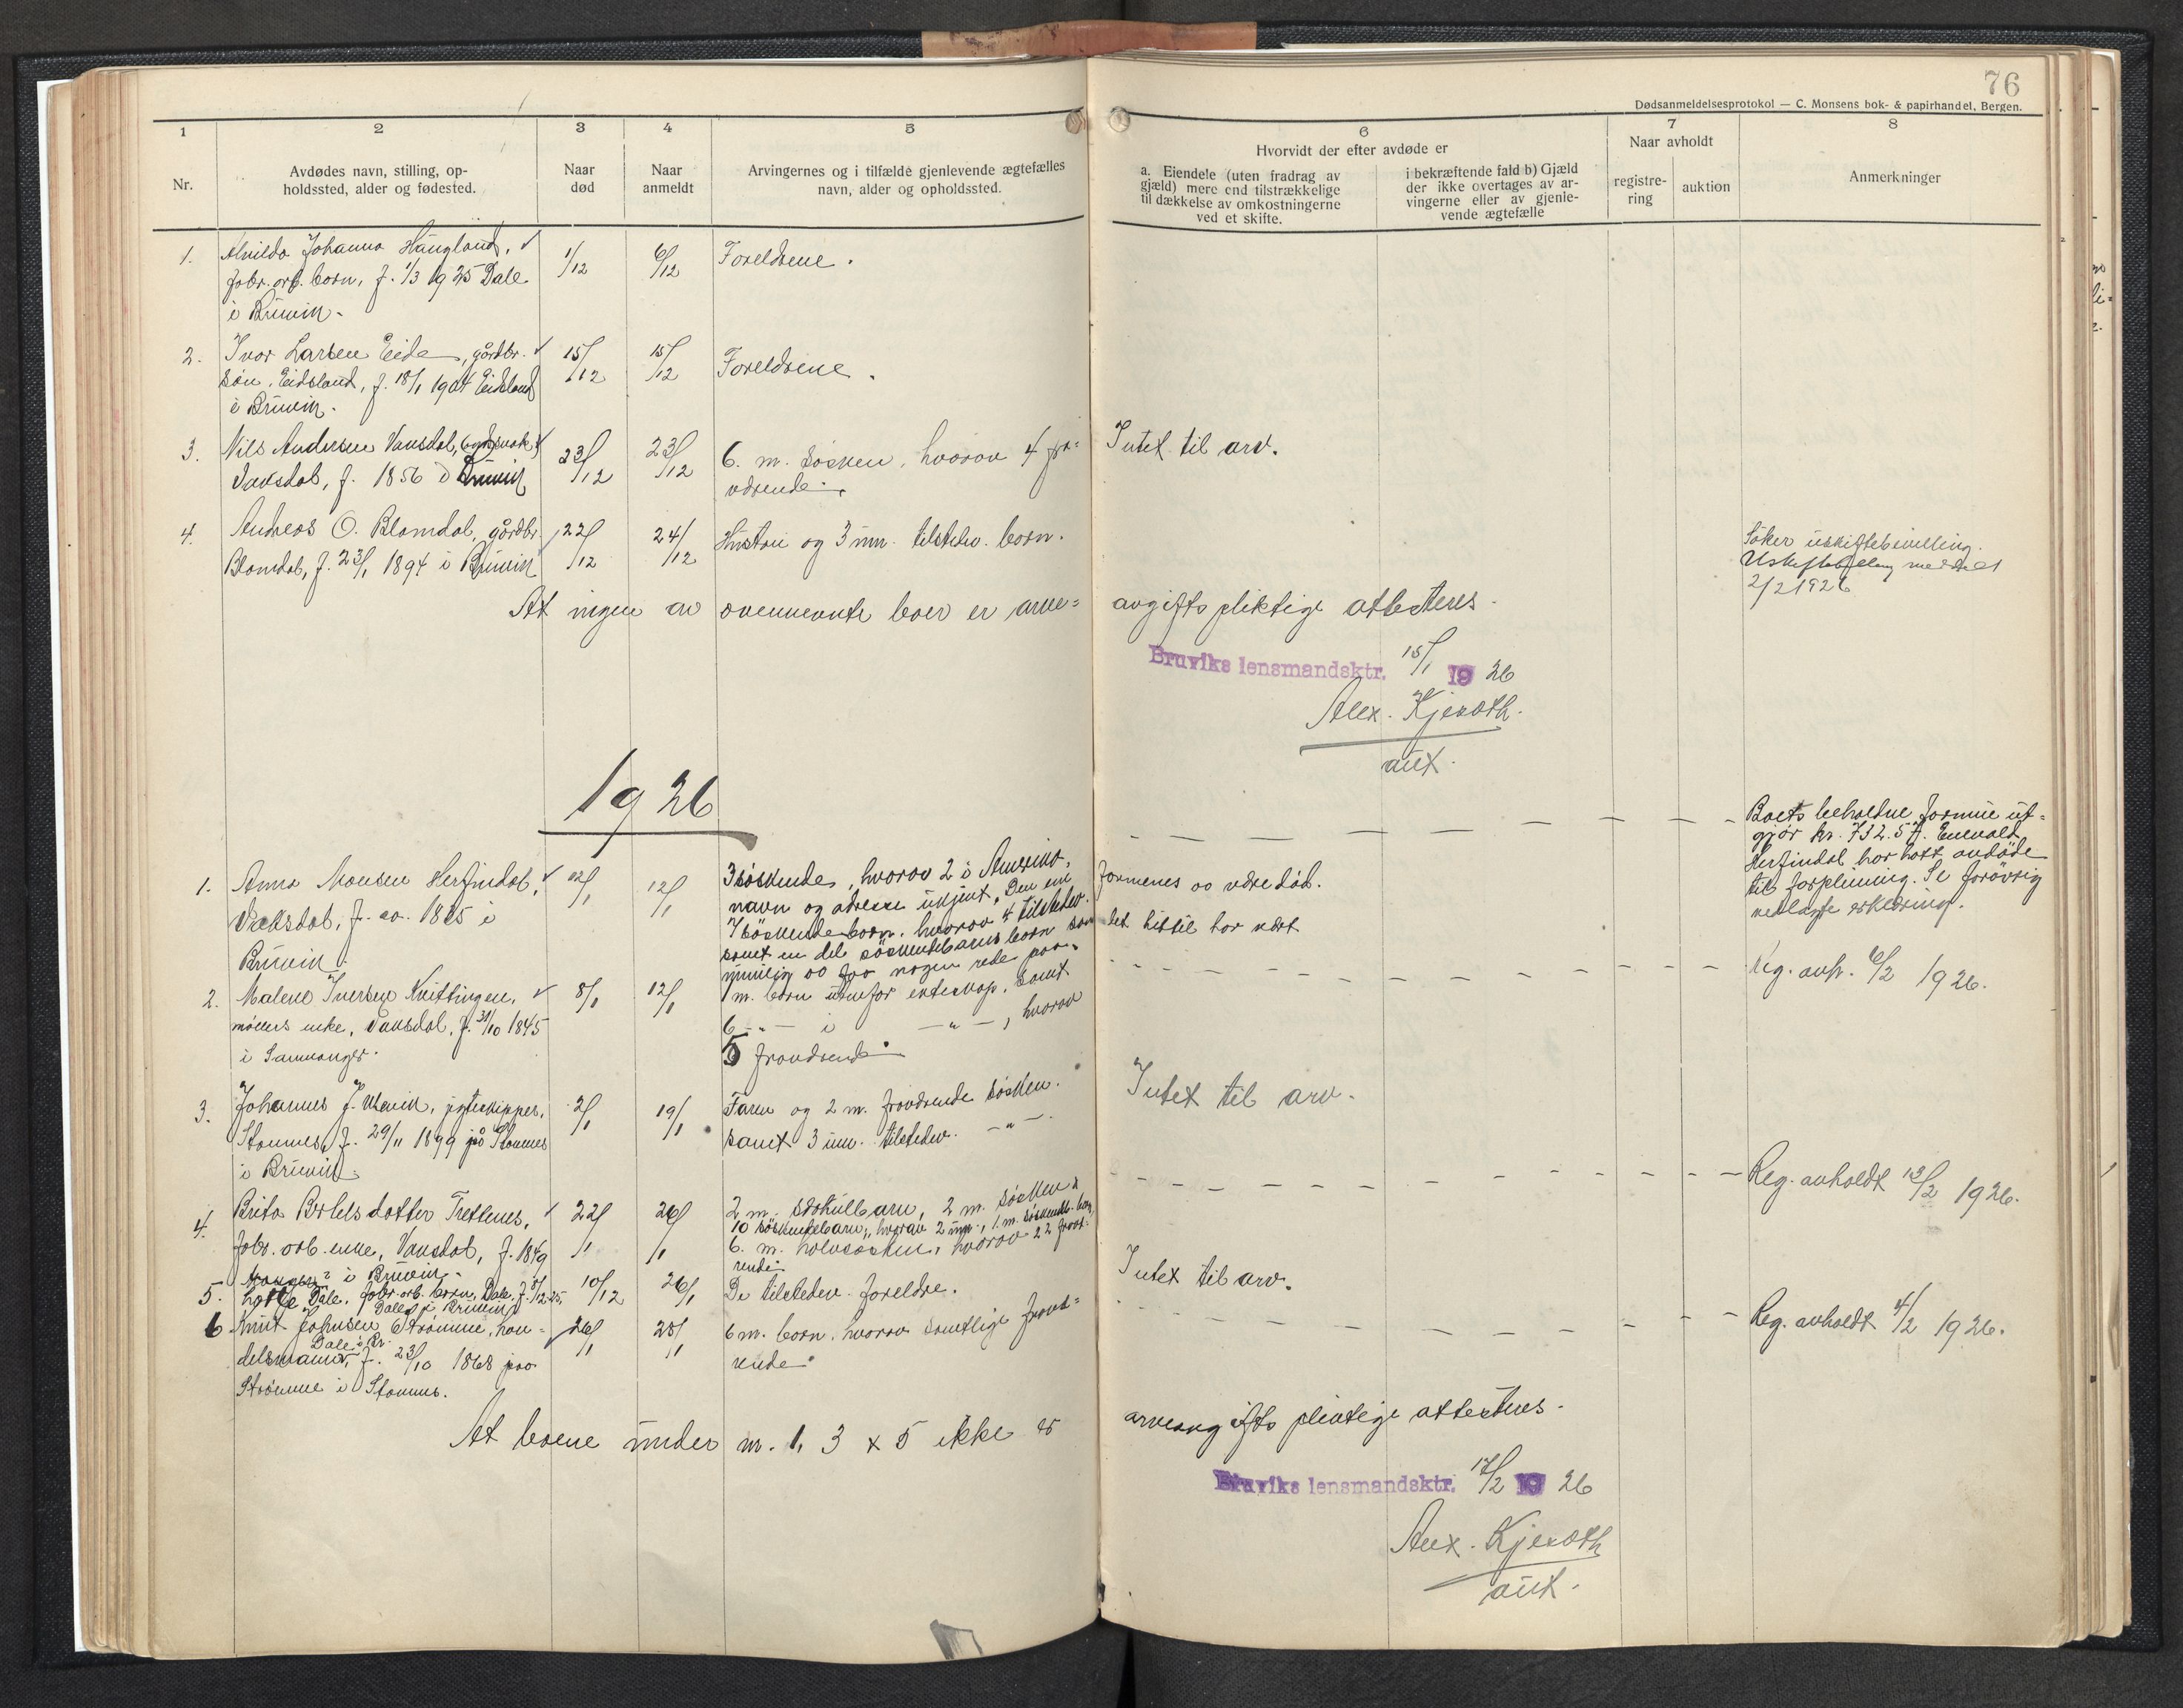 76
Dødsanmeldelsesprotokol — C. Monsens bok- & papirhandel, Bergen.
1
2
3
4
5
6
7
8
Nr.
Avdødes navn, stilling, op-
holdssted, alder og fødested.
Naar
død
Naar
anmeldt
Arvingernes og i tilfælde gjenlevende ægtefælles
navn, alder og opholdssted.
Hvorvidt der efter avdøde er
a. Eiendele (uten fradrag av
gjæld) mere end tilstrækkelige
til dækkelse av omkostningerne
ved et skifte.
i bekræftende fald b) Gjæld
der ikke overtages av ar-
vingerne eller av gjenle-
vende ægtefælle
Naar avholdt
registre-
ring
auktion
Anmerkninger
1. Alvilda Johanna Haugland,
fabr. arb. barn, f. 1/3 1925 Dale
i Bruvik.
1/12
6/12
Foreldrene.
2. Ivar Larsen Eide, gårdbr.
søn, Eidsland, f. 18/1 1904 Eidsland
i Bruvik.
15/12
15/12
Foreldrene.
3. Nils Andersen Vaksdal,
Vaksdal, f. 1856 i Bruvik
23/12
23/12
6. m. søsken, hvorav 4 fra=
værende.
Intet til arv.
4. Andreas O. Blomdal, gårdbr.
Blomdal, f. 23/1 1894 i Bruvik
22/12
24/12
Hustru og 3 um. tilstedv. barn.
Søker uskiftebevilling.
Uskiftebevilling meddelt
2/2 1926
At ingen av ovennevnte boer er arve=
avgiftspliktige attesteres.
Bruviks lensmandsktr. 15/1 1926
Alex. Kjenoth.
aut.
1926
1. Anna Monsen Herfindal,
Vaksdal, f. ca. 1885 i
Bruvik.
12/1
12/1
3 søskende, hvorav 2 i Amerika,
navn og adresse ukjent, Den ene
formenes å være død.
7 søskendebarn, hvorav 4 tilstedev.
samt en del søskendebarns barn som
det hittil har vært
umulig å faa nogen rede paa.
Boets beholdne formue ut=
gjør kr. 732.57. Enevald
Herfindal har hatt avdøde
til forpleining. Se forøvrig
vedlagte erklæring.
2. Malene Iversen Knittingen,
møllers enke, Vaksdal, f. 31/10 1845
i Samnanger.
8/1
12/1
1 m. barn utenfor ekteskap, samt
6 -"- i -"-, hvorav
5 fraværende.
Reg. avh. 6/2 1926.
3. Johannes J. jagteskipper,
Stamnes, f. 29/11 1899 på Stamnes
i Bruvik.
2/1
19/1
Faren og 2 m. fraværende søsken.
samt 3 um. tilstedev. -"-
Intet til arv.
4. Brita Bertelsdatter Trettenes,
fabr. arb. enke, Vaksdal, f. 1849
i Bruvik.
22/1
26/1
2 m. særkulbarn, 2 m. søsken &
10 søskendebarn, hvorav 2 um., 1. m. søskendb. barn,
6. m. halvsøsken, hvorav 22 fravæ-
rende.
Reg. avholdt 13/2 1926.
5. Dale, fabr. arb. barn, Dale, f. 8/12 25,
Dale i Bruvik
10/12
26/1
De tilstedev. foreldre.
Intet til arv.
6 Knut Johnsen Strømme, han=
delsmand, Dale i Br. f. 23/10 1868 paa
Strømme i Stamnes.
26/1
28/1
6 m. barn, hvorav samtlige fravæ=
rende.
Reg. avholdt 4/2 1926.
At boene under nr. 1, 3 & 5 ikke er
arveavgiftspliktige attesteres.
Bruviks lensmandsktr. 17/2 1926
Alex. Kjenoth
aut.